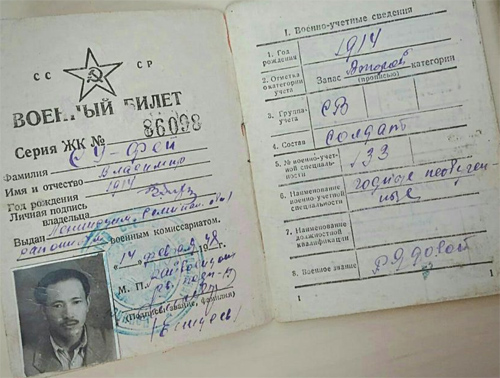 СС СР
ВОЕННЫЙ БИЛЕТ
Серия ЖК № 86098
Фамилия Су-Фей
Имя и отчество Владимир
Год рождения 1914
Личная подпись
владельца
Выдан
районным военным комиссариатом.
"14" февраля 1948 г.
М. П.
(Подпись, звание, фамилия)
I. Военно-учетные сведения
1. Год рождения 1914
2. Отметка о категории учета Запас второй категории
(прописью)
3. Группа учета СВ
4. Состав солдат
5. № военно-учетной специальности 133
6. Наименование военно-учетной специальности годные необученные
7. Наименование должностной квалификации
8. Военное звание рядовой
1
1